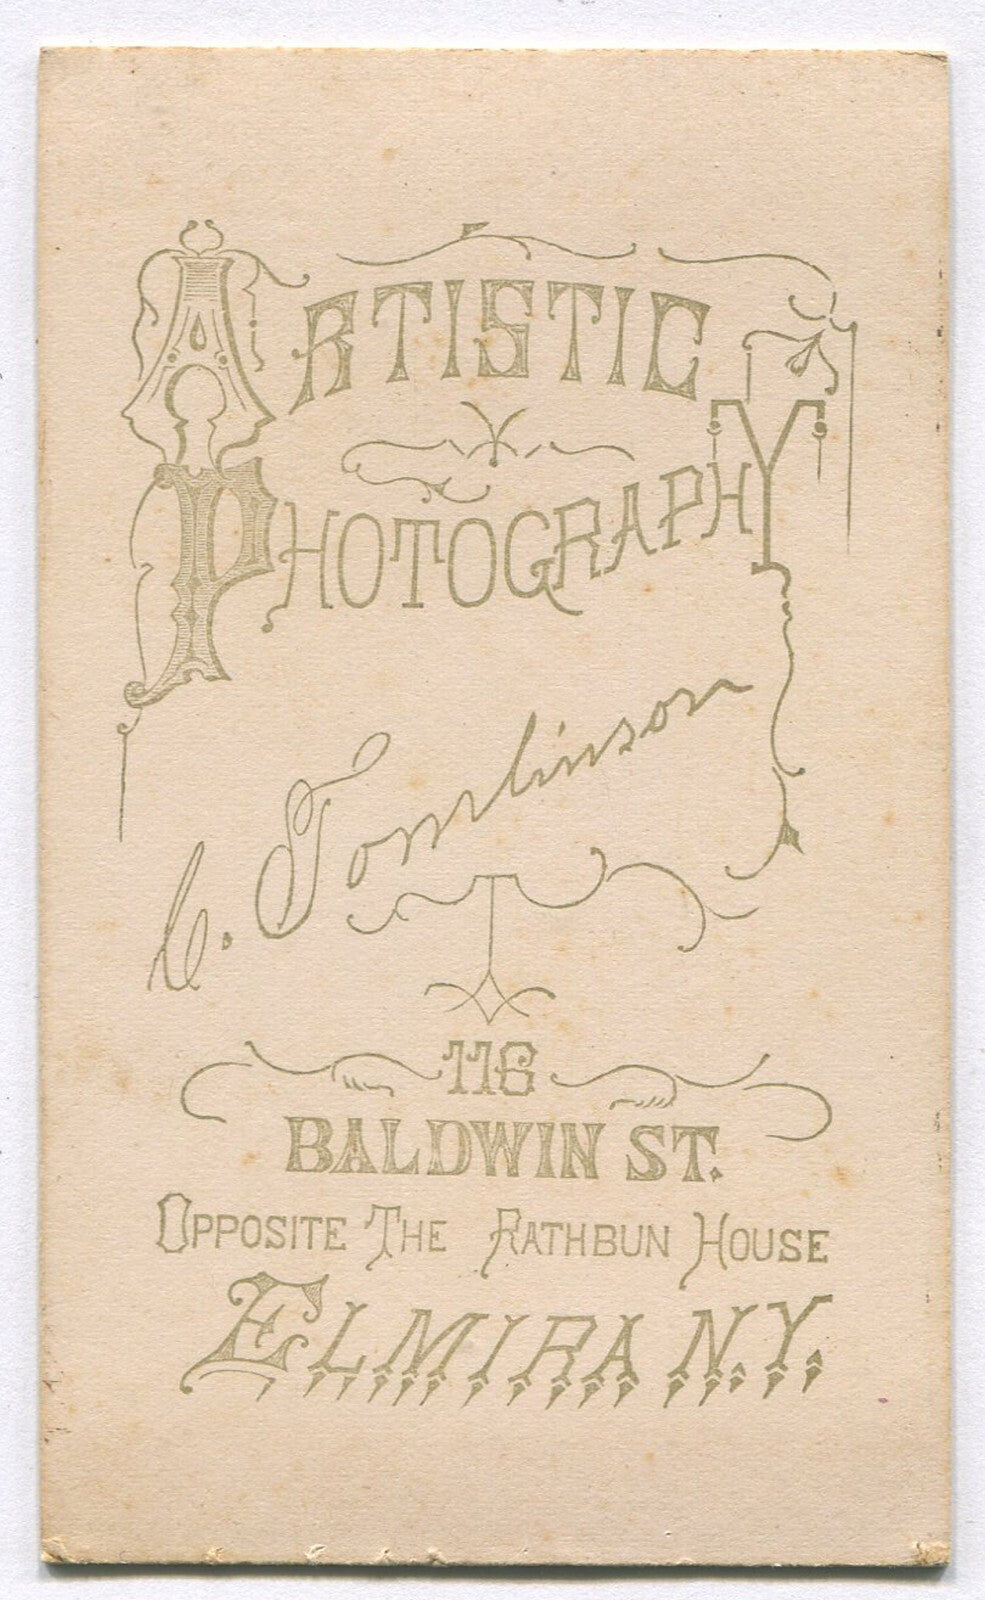 ARTISTIC
PHOTOGRAPHY
C. Tomlinson
116
BALDWIN ST.
OPPOSITE THE RATHBUN HOUSE
ELMIRA N.Y.